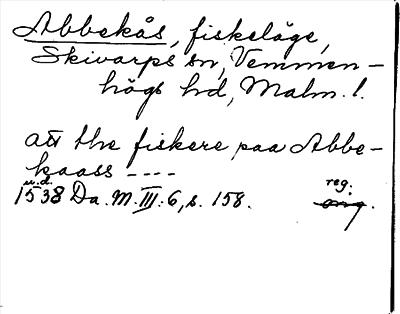 Abbekås, fiskeläge,
Skivarps sn, Vemmen-
högs hd, Malm. l.
att the fiskere paa Abbe-
kaass ----
u.d. reg.
1538 Da. M. III: 6, s. 158. orig.